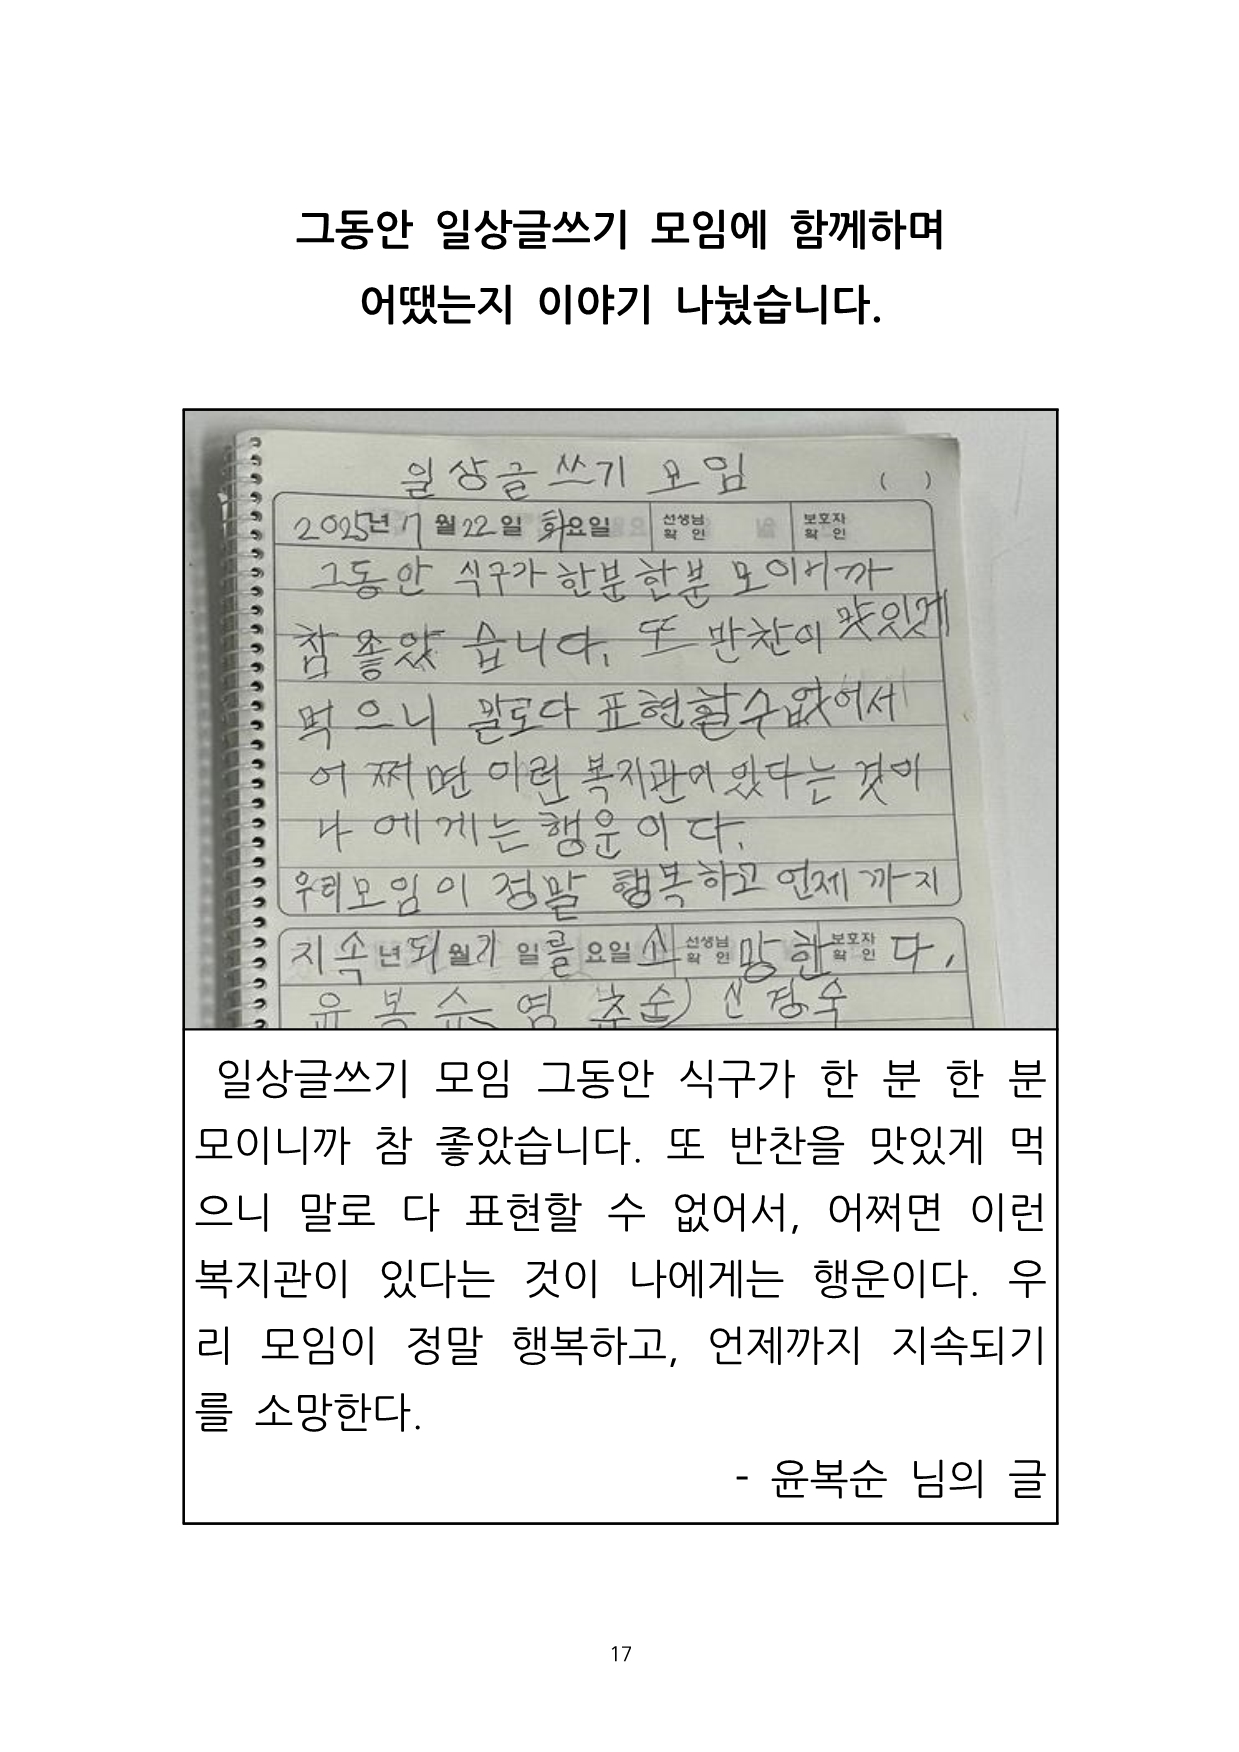 그동안 일상글쓰기 모임에 함께하며
어땠는지 이야기 나눴습니다.
일상글쓰기 모임 ( )
2025년 7월 22일 화요일 선생님 확인 보호자 확인
그동안 식구가 한분한분 모이니까
참 좋았습니다. 또 반찬이 맛있게
먹으니 말로다 표현할수없어서
어쩌면 이런 복지관이 있다는 것이
나에게는 행운이다.
우리모임이 정말 행복하고 언제까지
지속 년 되 월 기 일 를 요일 소 선생님 확인 망한 보호자 확인 다.
윤복순 영 춘순 신정숙
일상글쓰기 모임 그동안 식구가 한 분 한 분
모이니까 참 좋았습니다. 또 반찬을 맛있게 먹
으니 말로 다 표현할 수 없어서, 어쩌면 이런
복지관이 있다는 것이 나에게는 행운이다. 우
리 모임이 정말 행복하고, 언제까지 지속되기
를 소망한다.
- 윤복순 님의 글
17